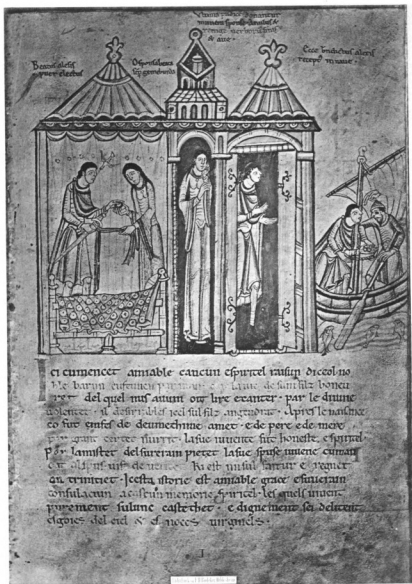 Ultima pudice donantur
munera sponse
& aue.
Beatus alexis
puer electus
O sponsa beata
semp gemebunda
Ecce benedictus alexis
receptus in naue.
Ici cumencet amiable cancun espiritel raisun diceol no
ble barun eufemien par num. e de la uie de sum filz boneu
ret del quel nus auum oit lire e canter. par le diuine
uolentet. il desirrables icel sul filz angendrat. Apres le naisance
co fut emfes de deu methime amet. e de pere e de mere
par grant certet nurrit. la sue iuuente fut honeste e spiritel.
Por lamistet del surerain pietet la sue spuse iuuene cuman
uif de ueritet. Ki est un sul faitur e regnet
an trinitiet. Icesta istorie est amiable grace e suuerain
consulaciun a cascun memorie spiritel. les quels uiuent
purement sulunc castethet. e dignement sei delitent
es goies del ciel & es noces uirginels.